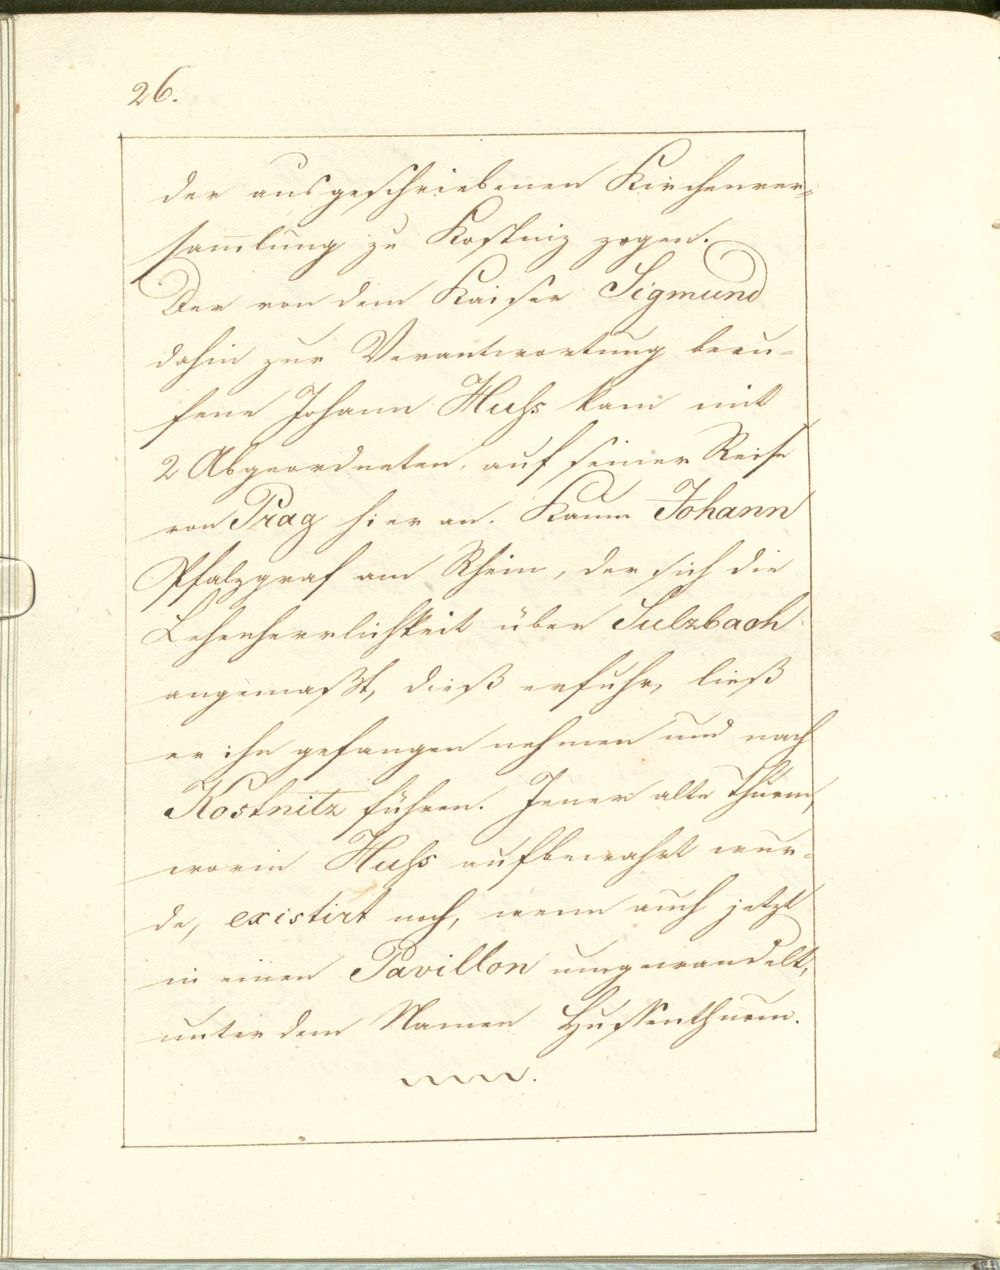 26.
der ausgeschriebenen Kirchenver=
sam̄lung zu Kostniz zogen.
Der von dem Kaiser Sigmund
dahin zur Verantwortung beru=
fene Johann Huhs kam mit
2 Abgeordneten, auf seiner Reise
von Prag hier an. Kaum Johann
Pfalzgraf am Rhein, der sich die
Lehenherrlichkeit über Sulzbach
angemaßt, dieß erfuhr, ließ
er ihn gefangen nehmen und nach
Kostnitz führen. Jener alte Thurm,
worin Huhs aufbewahrt wur=
de, existirt noch, wenn auch jetzt
in einen Pavillon umgewandelt,
unter dem Namen Hussenthurm.